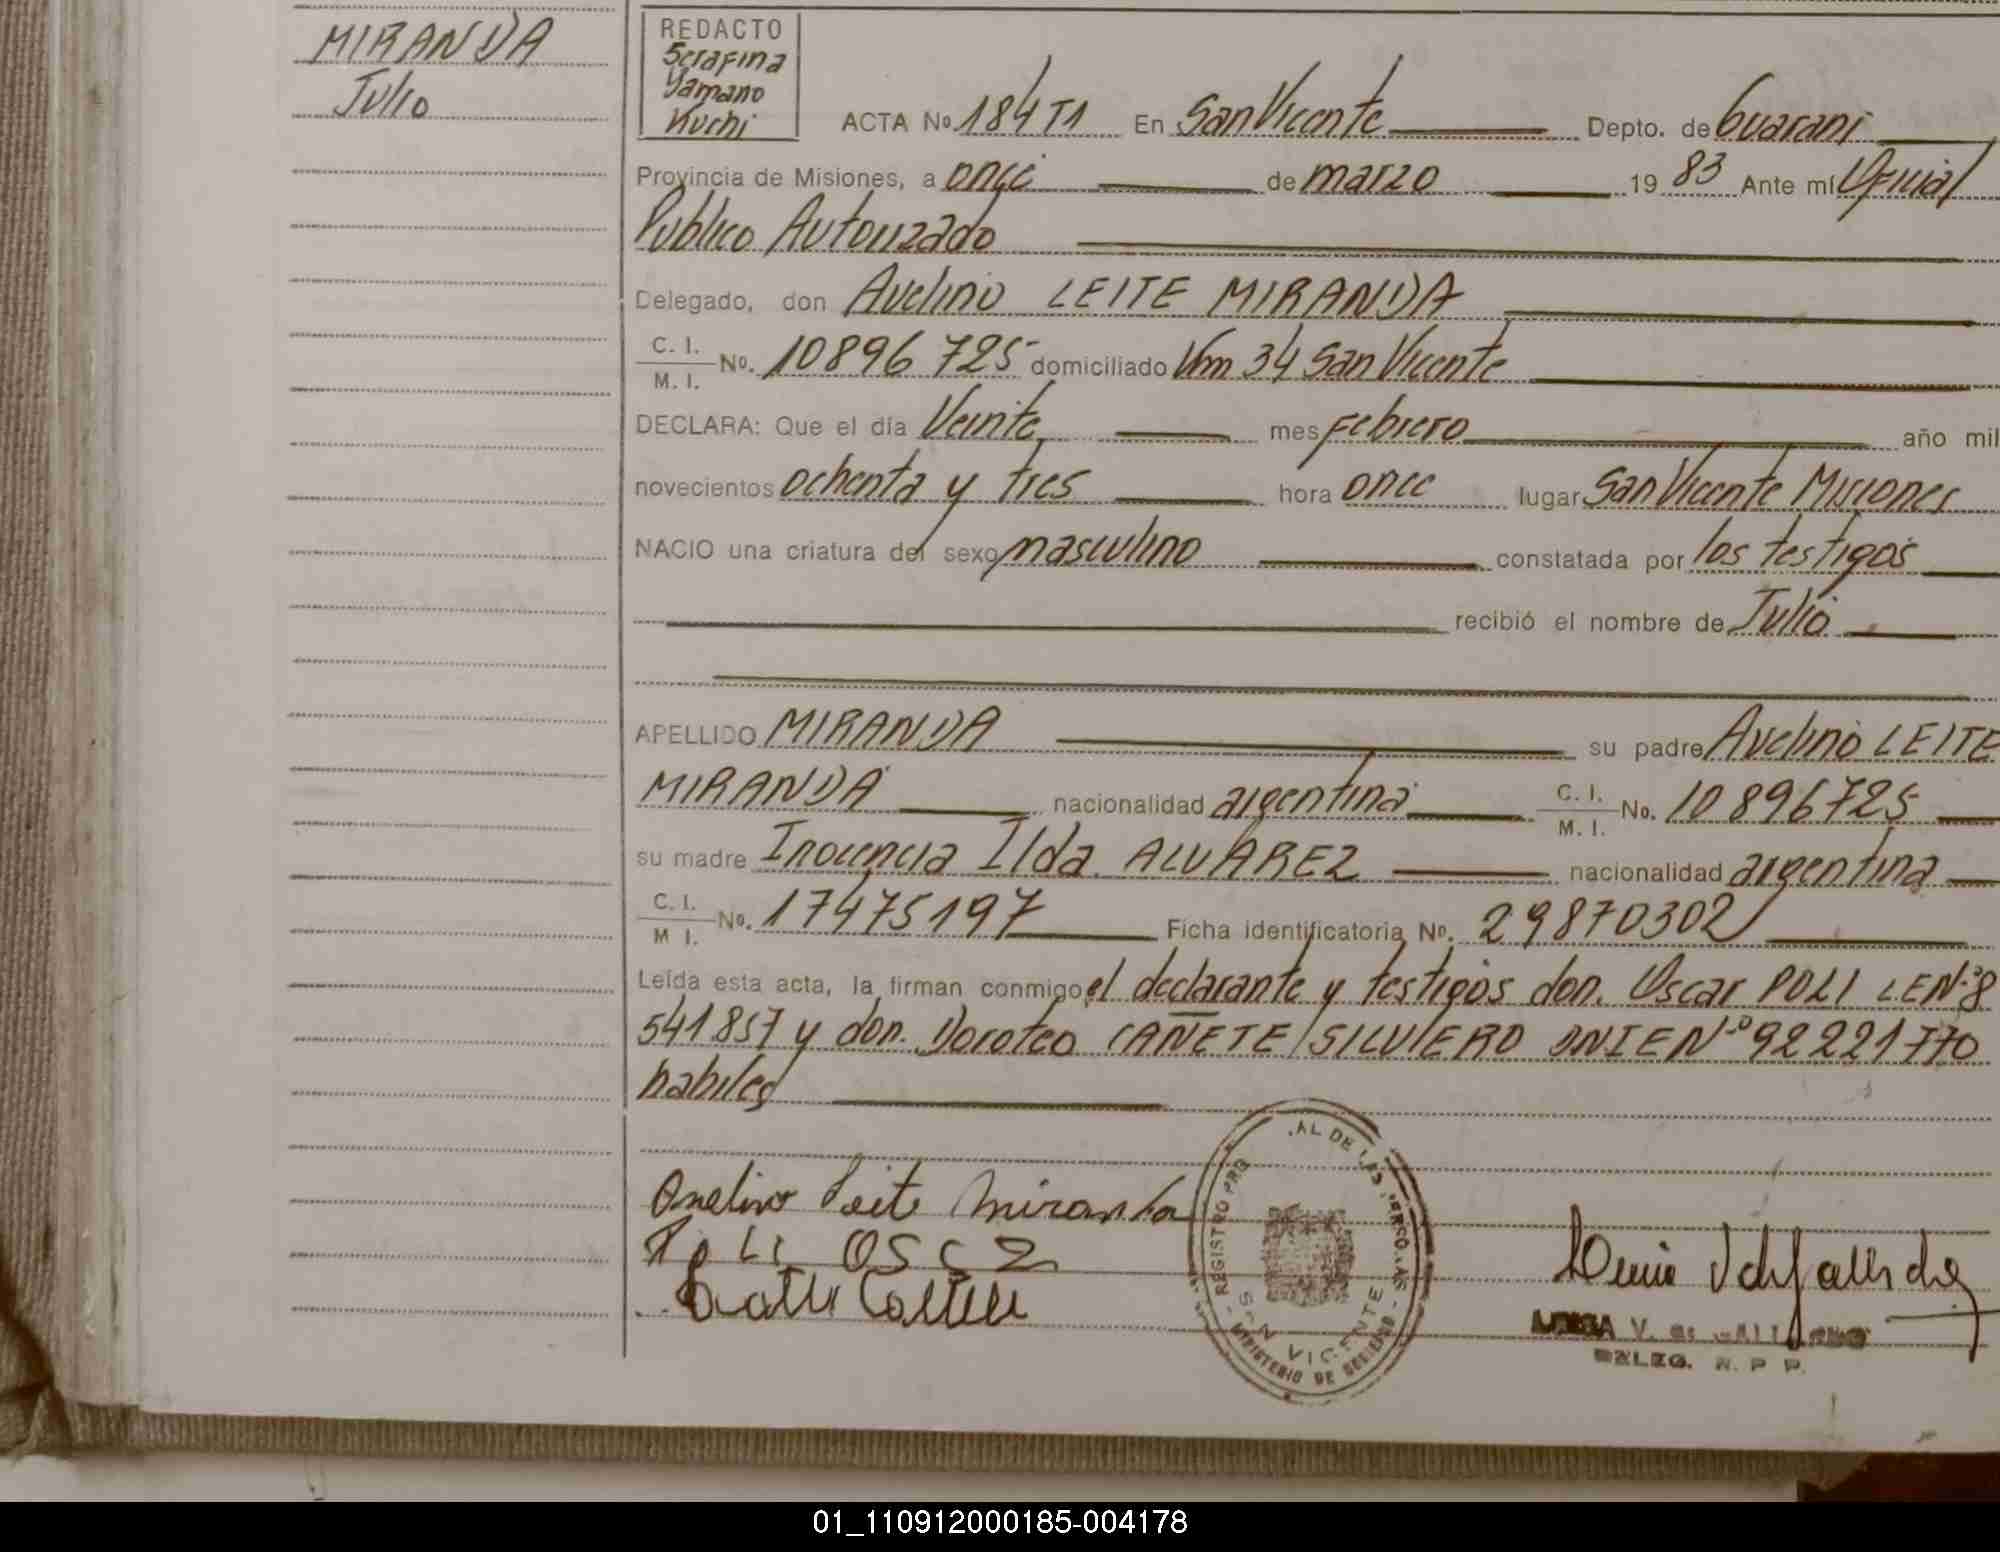 MIRANDA
Julio
REDACTO
Serafina
Yamano
Kuchi
ACTA No. 184 T1 En San Vicente Depto. de Guarani
Provincia de Misiones, a once de marzo 19 83 Ante mí Oficial
Publico Autorizado
Delegado, don Avelino LEITE MIRANDA
C. I.
M. I. No. 10896 725 domiciliado Km 34 San Vicente
DECLARA: Que el día Veinte mes Febrero año mil
novecientos ochenta y tres hora once lugar San Vicente Misiones
NACIO una criatura del sexo masculino constatada por los testigos
recibió el nombre de Julio
APELLIDO MIRANDA su padre Avelino LEITE
MIRANDA nacionalidad argentina C. I.
M. I. No. 10896725
su madre Inocencia Ilda ALVAREZ nacionalidad argentina
C. I.
M I. No. 17475197 Ficha identificatoria No. 29870302
Leída esta acta, la firman conmigo el declarante y testigos don. Oscar POLI LEN.º8
541857 y don. Doroteo CAÑETE SILVERO DNIEN.º92221770
habiles
Avelino Leite Miranda
REGISTRO PRO AL DE LAS PERSONAS
SAN VICENTE
MINISTERIO DE GOBIERNO
DELEG. R. P P.
01_110912000185-004178